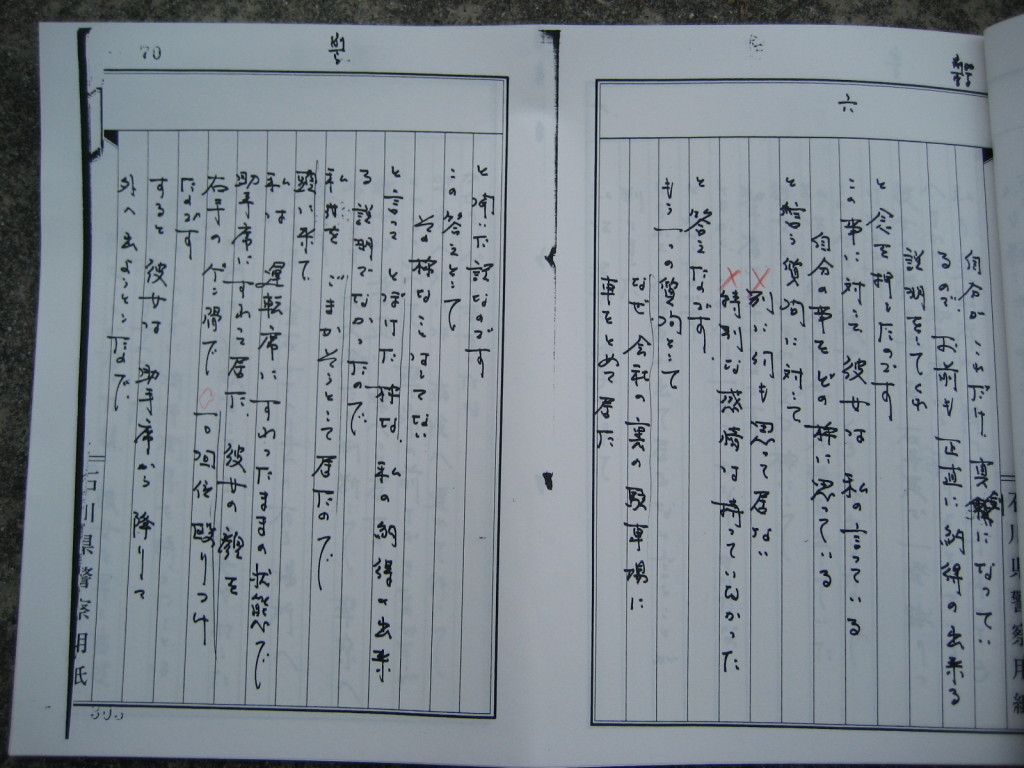 六
自分がこれだけ真剣になってい
るので お前も正直に納得の出来る
説明をしてくれ
と念を押したのです
この事に対して彼女は 私の言っている
自分の事をどの様に思っている
と言う質問に対して
別に何も思って居ない
特別な感情は持っていなかった
と答えたのです。
もう一つの質問として
なぜ会社の裏の駐車場に
車をとめて居た
石川県警察用紙
70
と聞いた訳なのです
この答えとして
その様なことはしてない
と言って とぼけた様な、私の納得の出来
る説明でなかったので
私は をごまかそうとして居たので
頭に来て
私は 運転席にすわったままの状態で
助手席にすわって居た 彼女の顔を
右手のゲンコツで 一〇回位殴りつけ
たのです
すると彼女は 助手席から降りて
外へ出ようとしたので
石川県警察用紙